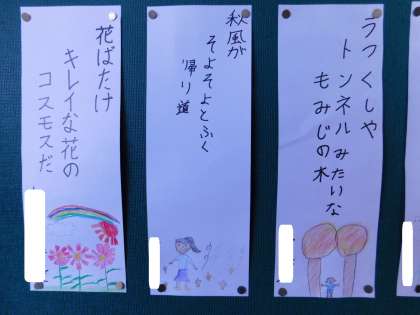 花ばたけ
キレイな花の
コスモスだ
秋風が
そよそよとふく
帰り道
うつくしや
トンネルみたいな
もみじの木